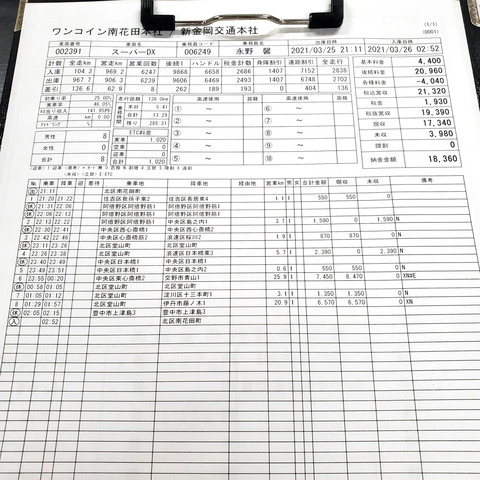 ワンコイン南花田本社 / 新金岡交通本社
(1/1)
(0001)
車両番号 車両名 乗務員コード 乗務員名 出庫日時 入庫日時
002391 スーパーDX 006249 永野 馨 2021/03/25 21:11 2021/03/26 02:52
計数 全走行 営走行 営業回数 後続1 ハンドル 税金計数 身障割引 遠距割引 全走行
入庫 104.3 969.2 6247 9868 6658 2686 1407 7152 2838
出庫 967.7 906.3 6239 9606 6469 2493 1407 6748 2702
差引 136.6 62.9 8 262 189 193 0 404 136
基本料金 4,400
後続料金 20,960
各種料金 -4,040
税込営収 21,320
税金 1,930
税抜営収 19,390
現収 17,340
未収 3,980
障割 0
納金金額 18,360
初乗り率 25.00%
営業率 46.05%
キロ当り収入 141.95円
高速 0.00
走行距離 136.0km
乗務時間
本日 5.41
合計 13.29
残り 285.31
高速使用 距離 高速使用 距離
① ～ ⑥ ～
② ～ ⑦ ～
③ ～ ⑧ ～
④ ～ ⑨ ～
⑤ ～ ⑩ ～
男性 8
女性 0
合計 8
ETC料金
実車 1,020
空車 0
迎車 0
合計 1,020
№ 乗車 降車 迎 着待 乗車地 降車地 経由地 営業km 男 女 合計金額 現収 未収 備考
出 21:11 北区南花田町
1 21:20 21:22 住吉区我孫子東2 住吉区長居東4 1.1 1 550 550 0
休 21:31 22:06 阿倍野区阿倍野筋1 阿倍野区阿倍野筋1
休 22:06 22:13 阿倍野区阿倍野筋1 阿倍野区阿倍野筋1
2 22:13 22:22 阿倍野区阿倍野筋1 中央区島之内2 3.7 1 1,590 1,590 0 N
休 22:30 22:42 中央区西心斎橋1 中央区西心斎橋2
3 22:42 22:46 中央区心斎橋筋2 浪速区桜川2 1.9 1 870 870 0 N
休 23:11 23:26 北区堂山町 北区堂山町
4 23:26 23:38 北区堂山町 浪速区日本橋東3 5.7 1 2,390 0 2,390 N
休 23:40 23:49 中央区日本橋1 中央区日本橋1
5 23:49 23:51 中央区日本橋1 中央区島之内2 0.6 1 550 550 0 N
6 23:55 00:20 中央区東心斎橋2 交野市青山1 25.9 1 7,450 8,470 0 XN※E
休 00:58 01:05 北区堂山町 北区堂山町
7 01:05 01:12 北区堂山町 淀川区十三本町1 3.1 1 1,350 0 N
8 01:29 01:57 北区堂山町 伊丹市昆ノ木1 20.9 1 6,570 6,570 0 XN
休 02:05 02:15 豊中市上津島3 豊中市上津島3
入 02:52 北区南花田町